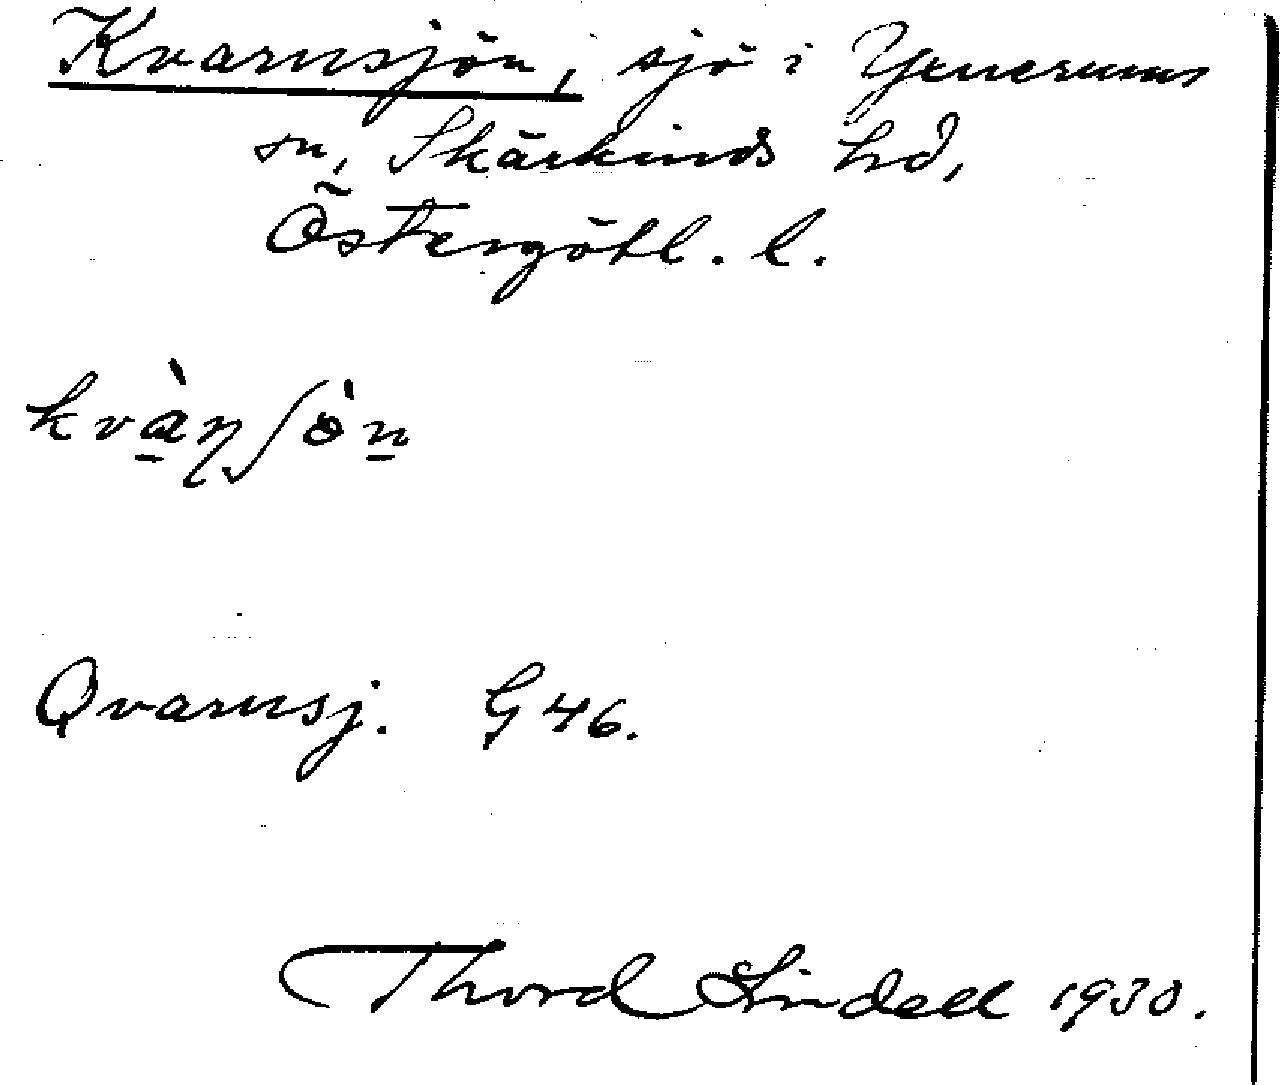 Kvarnsjön, sjö i Yxnerums
sn, Skärkinds hd,
Östergötl. l.
kvàɳʃòn
Qvarnsj. G 46.
Thord Lindell 1930.